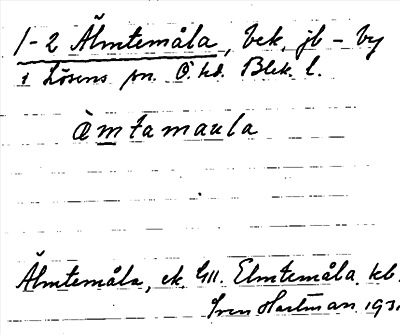 1-2 Älmtemåla, bek. jb - by
i Lösens sn. Ö. hd. Blek. l.
àmtamaula
Älmtemåla, ek. GII. Elmtemåla, kb.
Sven Hartman 193